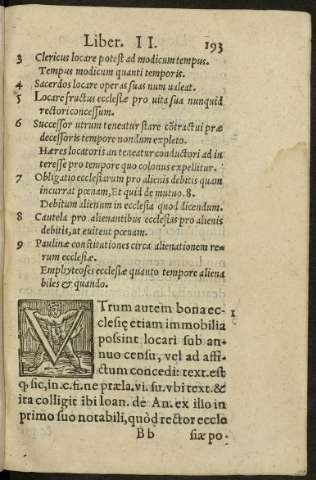 Liber. II. 193
3 Clericus locare potest ad modicum tempus.
Tempus modicum quanti temporis.
4 Sacerdos locare operas suas num valeat.
5 Locare fructus ecclesiæ pro vita sua nunquid
rectori concessum.
6 Successor utrum teneatur stare cõtractui præ
decessoris tempore nondum expleto.
Hæres locatoris an teneatur conductori ad in
teresse pro tempore quo colonus expellitur.
7 Obligatio ecclesiarum pro alienis debitis quan
incurrat pœnam, Et quid de mutuo. 8.
Debitum alienum in ecclesia quod dicendum.
8 Cautela pro alienantibus ecclesias pro alienis
debitis, ut evitent pœnam.
9 Paulinæ constitutiones circa alienationem re-
rum ecclesiæ.
Emphyteoses ecclesiæ quanto tempore aliena
biles & quando.
VTrum autem bona ec- 1
clesię etiam immobilia
possint locari sub an-
nuo censu, vel ad affi-
ctum concedi: text. est
ꝙ sic, in. c. fi. ne præla. vi. su. vbi text. &
ita colligit ibi Ioan. de An. ex illo in
primo suo notabili, quòd rector eccle
Bb siæ po-